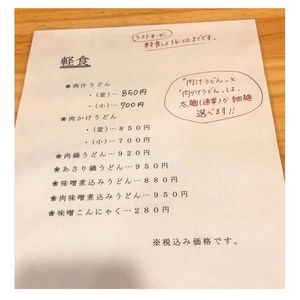 ラストオーダー
軽食は16:00までです。
軽食
❀肉汁うどん
・(並)…850円
・(小)…700円
❀肉かけうどん
・(並)…850円
・(小)…700円
❀肉鍋うどん…920円
❀あさり鍋うどん…950円
❀味噌煮込みうどん…880円
❀肉味噌煮込みうどん…950円
❀味噌こんにゃく…280円
※税込み価格です。
「肉汁うどん」と
「肉かけうどん」は、
太麺(通常)か細麺
選べます!!